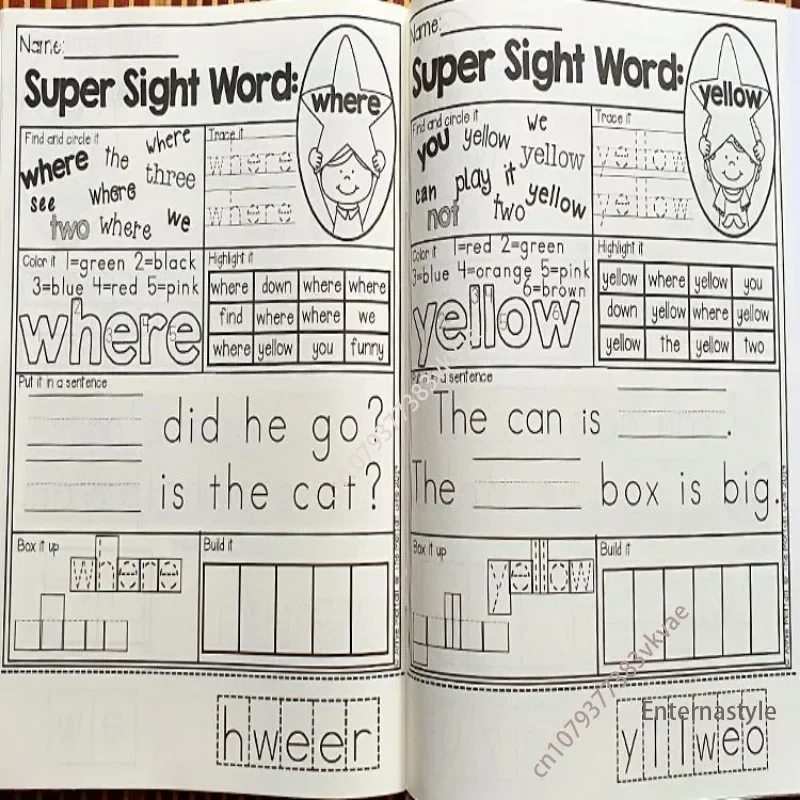 Name:
Super Sight Word:
where
Find and circle it
where the where
three
see where
two where we
Trace it
where
where
Color it 1=green 2=black
3=blue 4=red 5=pink
where
Highlight it
where down where where
find where where we
where yellow you funny
Put it in a sentence
did he go?
is the cat?
Box it up
where
Build it
hweer
Name:
Super Sight Word:
yellow
Find and circle it
you yellow we
yellow
can play it
not two yellow
Trace it
yellow
yellow
Color it 1=red 2=green
3=blue 4=orange 5=pink
6=brown
yellow
Highlight it
yellow where yellow you
down yellow where yellow
yellow the yellow two
Put it in a sentence
The can is .
The box is big.
Box it up
yellow
Build it
yllweo
Enternastyle
cn1079377383vkvae